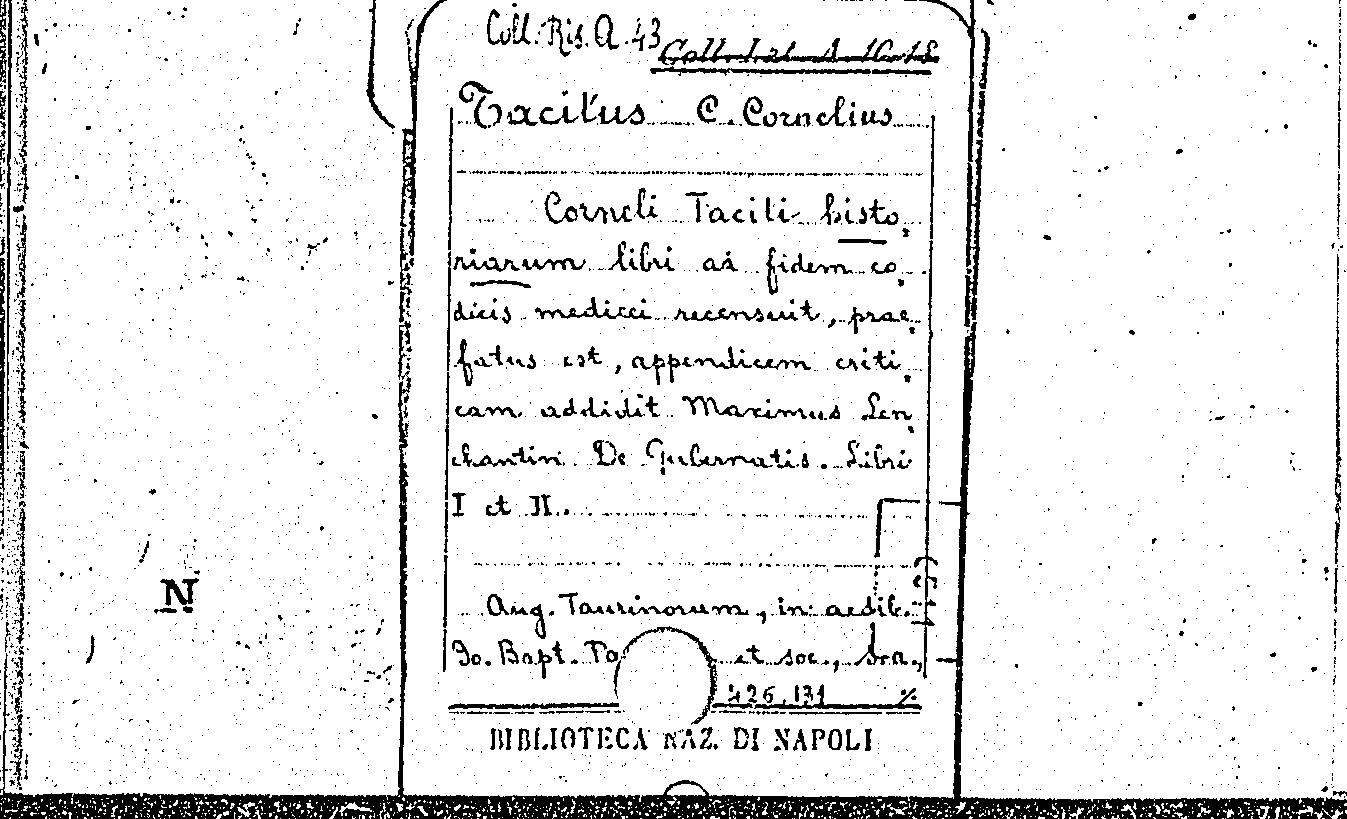 Coll. Ris. A. 43
Tacitus C. Cornelius
Corneli Taciti histo,
riarum libri ad fidem co,
dicis medicei recensuit, prae,
fatus est, appendicem criti,
cam addidit Maximus Len,
chantin De Gubernatis. Libri
I et II.
Aug. Taurinorum, in aedib.
Io. Bapt. Pa et soc.,
426,131 %
BIBLIOTECA NAZ. DI NAPOLI
N